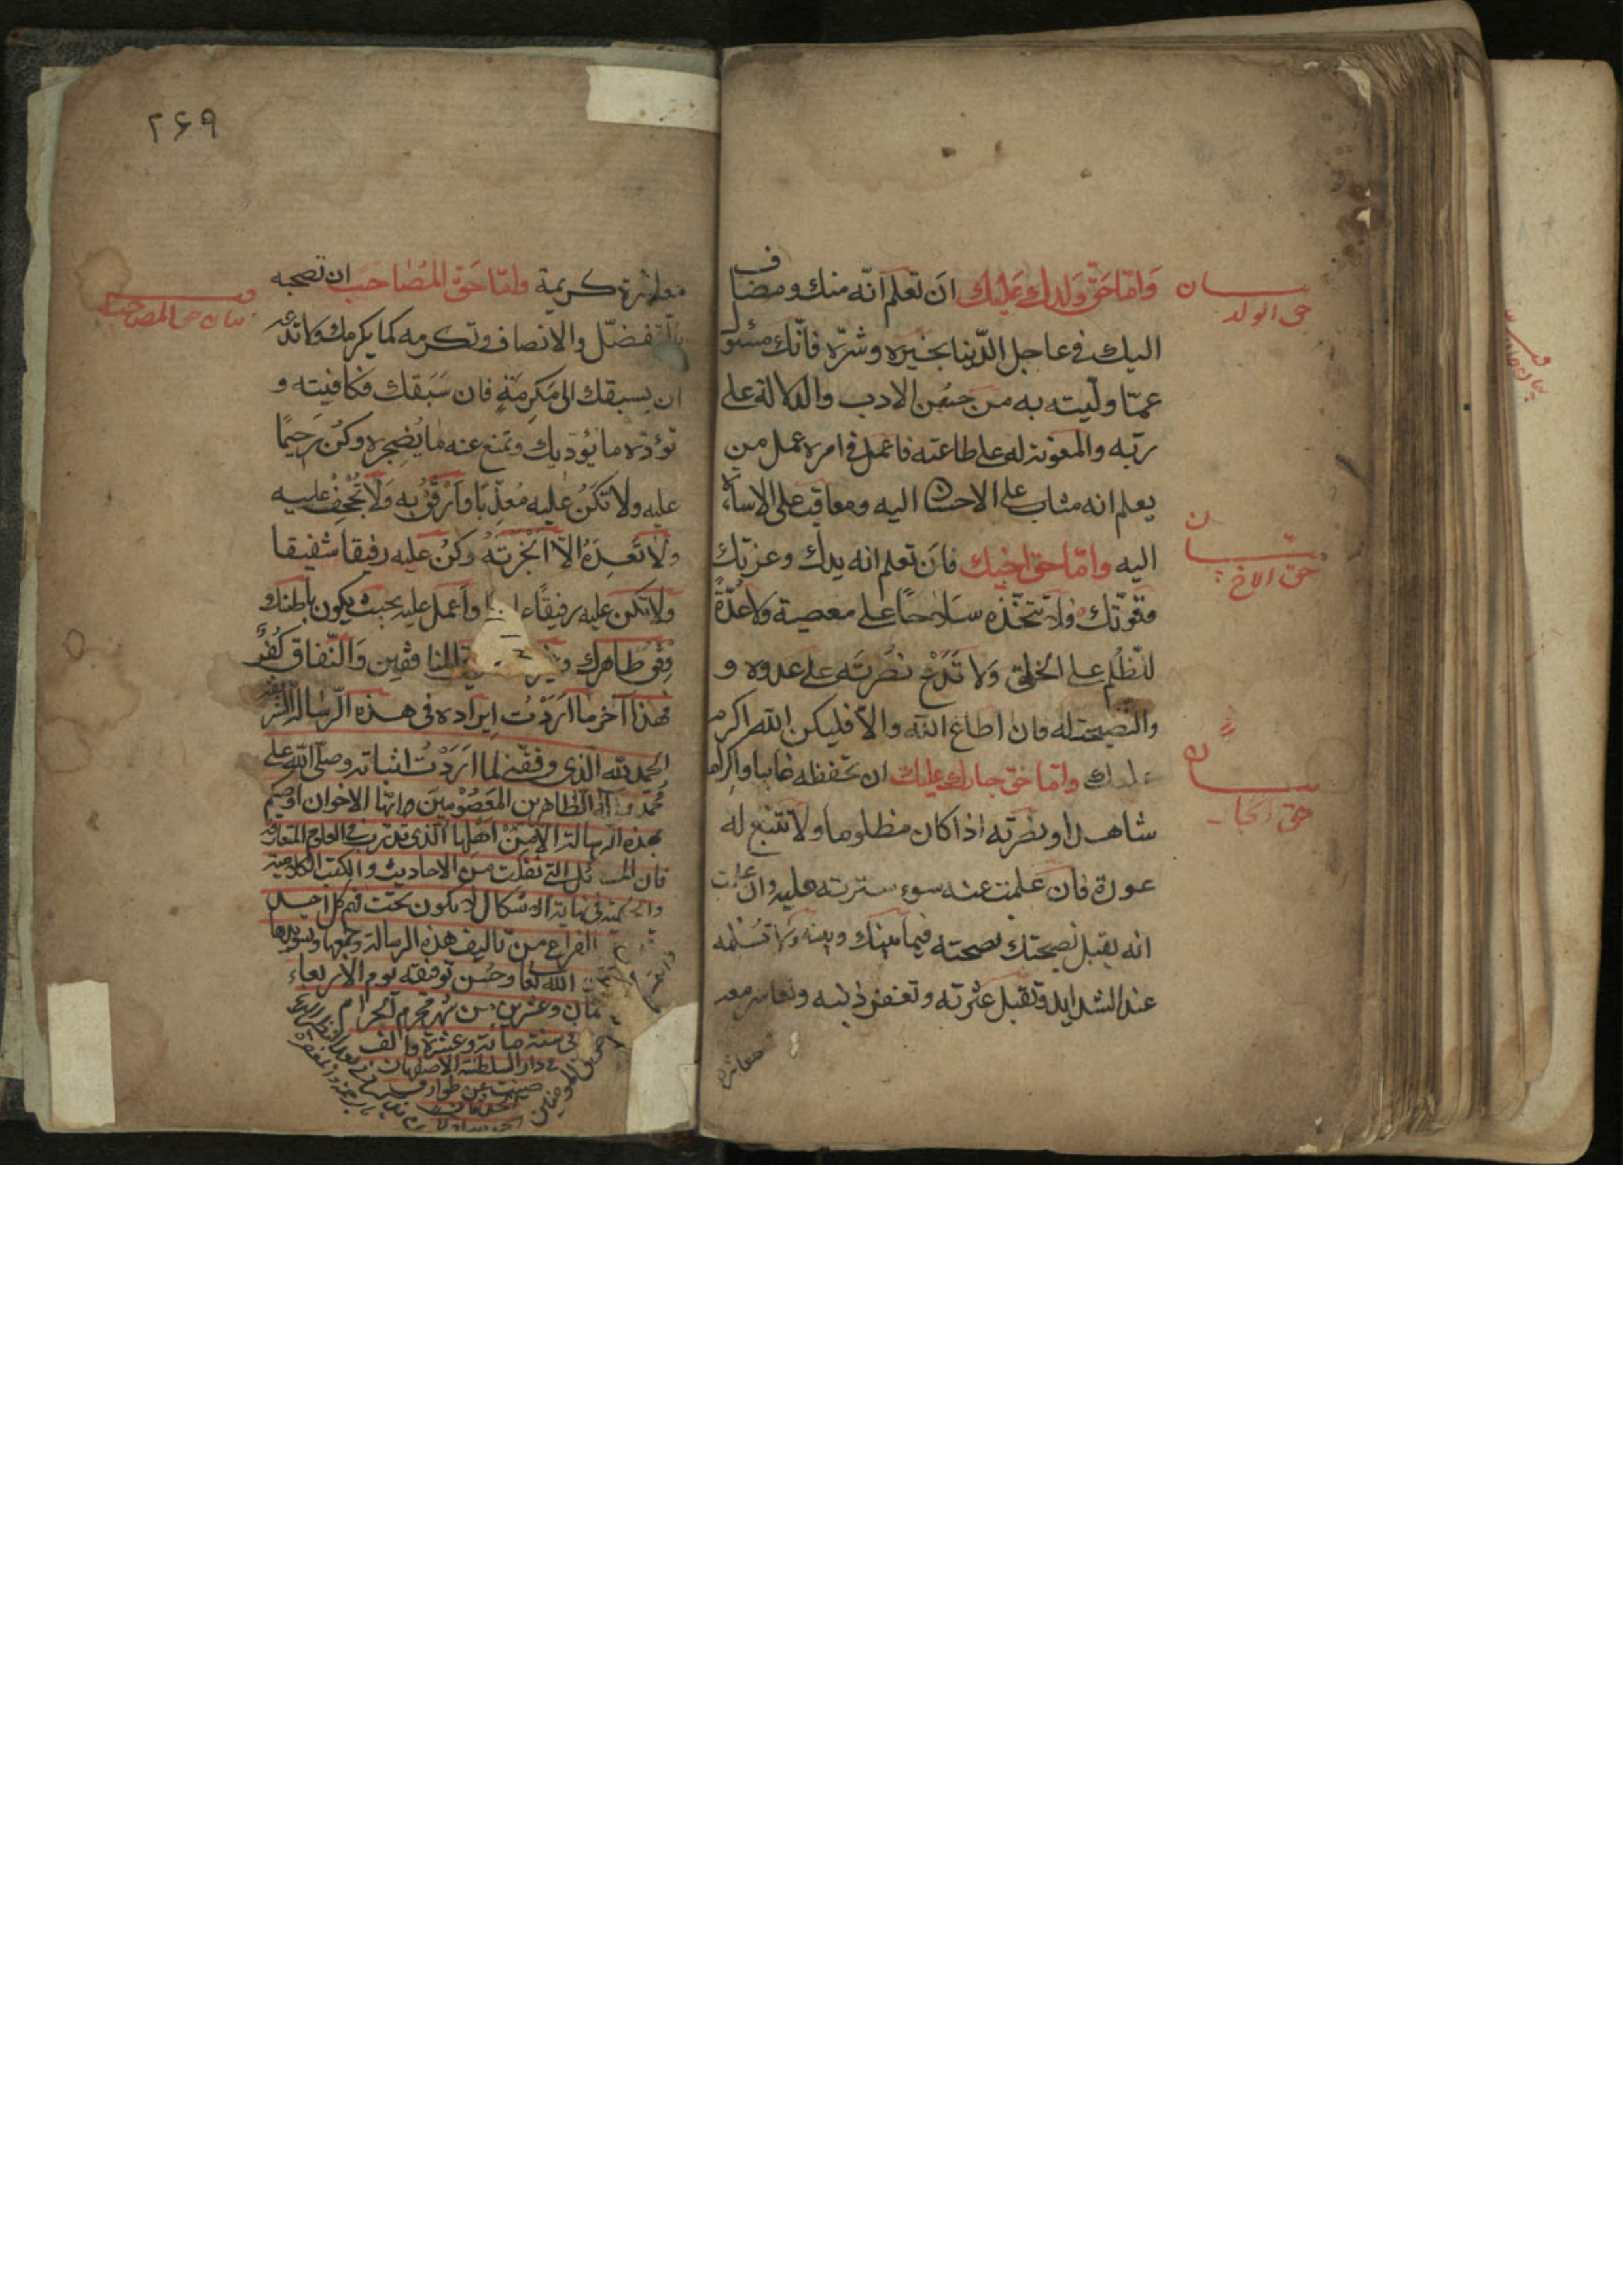 بيان
حق الولد
وَامّا حَقّ وَلدك عَلَيك ان تعلم انّه منك ومضاف
اليك فى عاجل الدّنيا بخيره وشرّه فانّك مسئول
عمّا وليته به من حسُن الادب والدلالة على
ربّه والمعونة له على طاعته فاعمل فى امره عمل من
يعلم انه مثاب على الاحسان اليه ومعاقب على الاساءة
بيان
حق الاخ
اليه وامّا حق اخيك فان تعلم انه يدك وعزتك
وقوّتك فلا تتخّذه سلاحًا على معصية ولا عُدّةً
للظُلم على الخلق وَلا تَدَع نصُرتَه على عدوه و
والنّصيحة له فان اطاع الله والّا فليكن الله اكرم
بيان
حق الجار
عليك وامّا حق جارك عليك ان تحفظه غايبا واكرامه
شاهدا ونصرته اذا كان مظلوما ولا تتبع له
عورة فان علمت عنه سوء سترته عليه وان علمت
انه يقبل نصيحتك نصحته فيما بينك وبينه ولا تسلمه
عند الشدايد وتقبل عثرته وتغفر ذنبه وتعاشر معه
معاشرة
٢۶٩
بيان حق المصاحب
معاشرة كريمة وامّا حَقّ المُصاحَب ان تصحبه
بالتّفضّل والانصاف وتكرمه كما يكرمك ولا تدعه
ان يسبقك الى مَكرِمَةٍ فان سَبَقك فكافيته و
تؤدّه ما يؤديك وتمنع عنه ما يُضجره وكُن رَحيمًا
عليه ولا تكنُ عليه مُعذّبًا وَارفُق به وَلا تُجْحِفْ عليه
ولا تَعِدَهُ الّا انجزتَهُ وكنُ عليه رفيقا شفيقا
ولا تكن عليه رفيقًا واعمل عليه بحيث يكون باطنك
وفق ظاهرك للمنافقين وَالنّفاق كُفرٌ
فهذا آخر ما اَرَدْتُ اِيراده فى هذه الرّسالة
الحمد لله الّذى وفقنى لما ارَدْتُ اثباته وصلّى الله على
محمّد وآله الطّاهرين المعصُومين وايّها الاخوان اوصيكم
بهذه الرسالة الّا مِنْ اهلها الّذى تدرّب فى العلوم المتعارفة
فان المسائل التى نقلت من الاحاديث والكتب الكلامية
والحكمية فى غاية الاشكال لا يكون تحت فهم كل احد
الفراغ من تاليف هذه الرسالة وجمعها وتسويدها
الله تعا وحُسن توفيقه يوم الاربعاء
ثمان وعشرين من شهر محرم الحرام
فى سنة مائة وعشرة والف
فى دار السلطنة الاصفهان
صينت عن طوارق
الحدثان